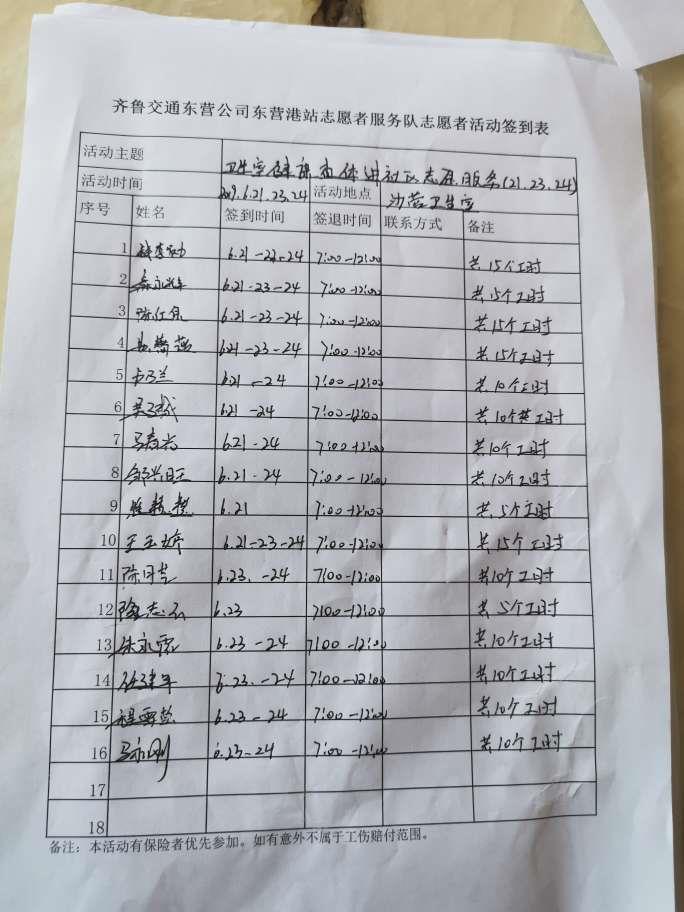 齐鲁交通东营公司东营港站志愿者服务队志愿者活动签到表
活动主题 卫生室健康查体进社区志愿服务(21.23.24)
活动时间 2019.6.21.23.24 活动地点 卫生室
序号 姓名 签到时间 签退时间 联系方式 备注
1 6.21-23-24 7:00-12:00 共15个工时
2 6.21-23-24 7:00-12:00 共15个工时
3 陈仁 6.21-23-24 7:00-12:00 共15个工时
4 6.21-23-24 7:00-12:00 共15个工时
5 兰 6.21-24 7:00-12:00 共10个工时
6 6.21-24 7:00-12:00 共10个工时
7 马 6.21-24 7:00-12:00 共10个工时
8 邹兴旺 6.21-24 7:00-12:00 共10个工时
9 6.21 7:00-12:00 共5个工时
10 王玉娇 6.21-23-24 7:00-12:00 共15个工时
11 陈月 6.23.-24 7:00-12:00 共10个工时
12 志 6.23 7:00-12:00 共5个工时
13 朱永霞 6.23-24 7:00-12:00 共10个工时
14 6.23.-24 7:00-12:00 共10个工时
15 程 6.23-24 7:00-12:00 共10个工时
16 马永刚 6.23-24 7:00-12:00 共10个工时
17
18
备注：本活动有保险者优先参加。如有意外不属于工伤赔付范围。